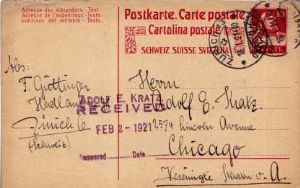 Adresse des Absenders.-Text
Adresse de l'expéditeur.-Texte
Indirizzo del mittente.-Testo
Postkarte. Carte postale
Cartolina postale
SCHWEIZ SUISSE SVIZZERA
ZÜRICH
Abs:
F. Göttinger
Zürich 6
(Schweiz)
Herrn
Adolf E. Kratz
ADOLF E. KRATZ
RECEIVED
FEB 2 - 1921
2574 Lincoln Avenue
Chicago
Vereinigte Staaten v. A.
Answered Date